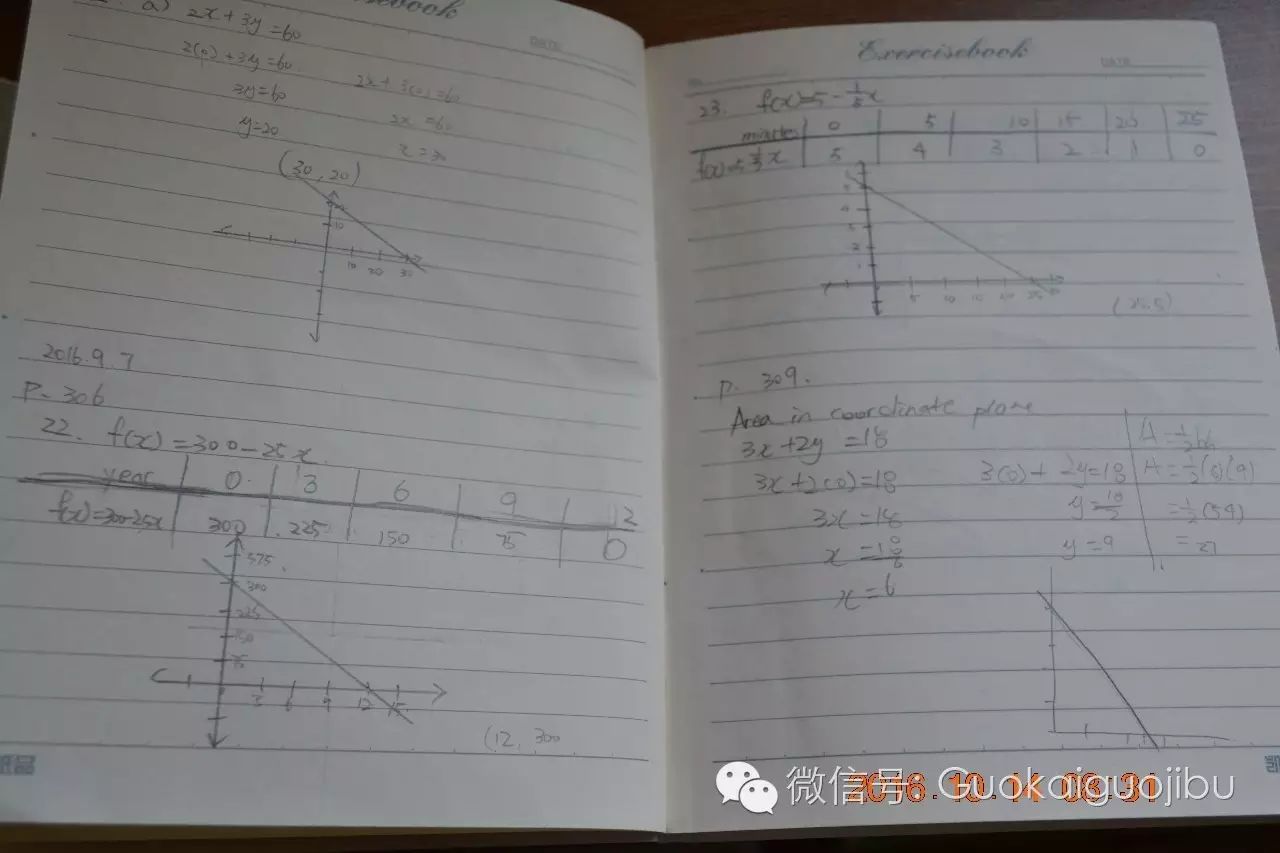 a) 2x + 3y = 60
2(0) + 3y = 60
2x + 3(0) = 60
3y = 60
2x = 60
y = 20
x = 30
(30, 20)
10
10 20 30
2016.9.7
P. 306
22. f(x) = 300 - 25x
year 0 3 6 9 12
f(x) = 300 - 25x 300 225 150 75 0
375
300
225
150
75
3 6 9 12 15
(12, 300
Exercisebook
DATE
23. f(x) = 5 - 1/5 x
minutes 0 5 10 15 20 25
5 4 3 2 1 0
5
4
3
2
1
5 10 15 20 25
(25.5)
P. 309.
Area in coordinate plane
3x + 2y = 18
3x + 2(0) = 18
3x = 18
x = 6
3(0) + 2y = 18
y = 18/2
y = 9
A = 1/2 bh
A = 1/2 (6)(9)
= 1/2 (54)
= 27
微信号: Guokaiguojibu
2016.10.14 08:31